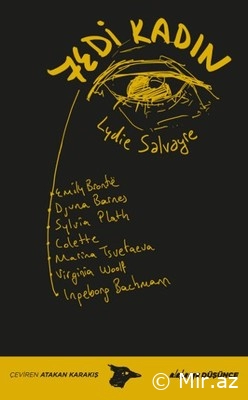 7EDİ KADIN
Lydie Salvayre
Emily Brontë
Djuna Barnes
Sylvia Plath
Colette
Marina Tsvetaeva
Virginia Woolf
Ingeborg Bachmann
ÇEVİREN ATAKAN KARAKIŞ
DÜŞÜNCE
Mir.az